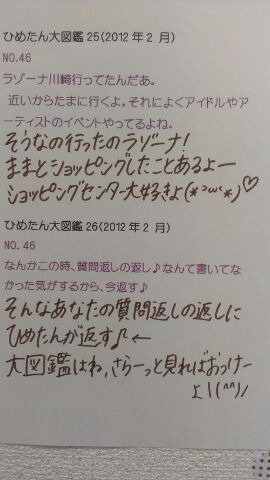 ひめたん大図鑑 25(2012 年 2 月)
NO.46
ラゾーナ川崎行ってたんだあ。
近いからたまに行くよ。それによくアイドルやア
ーティストのイベントやってるよね。
そうなの行ったのラゾーナ!
ままとショッピングしたことあるよー
ショッピングセンター大好きよ(*´ω`*)♡
ひめたん大図鑑 26(2012 年 2 月)
NO.46
なんかこの時、質問返しの返し♪なんて書いてな
かった気がするから、今返す♪
そんなあなたの質問返しの返しに
ひめたんが返す♪←
大図鑑はね、さらーっと見ればおっけー
よ!(^^)ノ